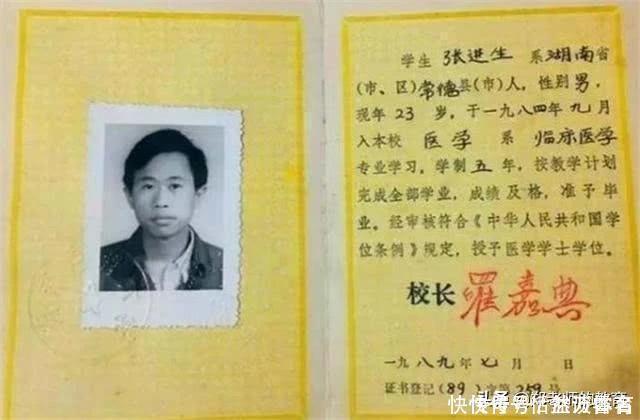 学生 张进生 系湖南省
(市、区)常德县(市)人，性别男，
现年23岁，于一九八四年九月
入本校 医学 系 临床医学
专业学习，学制五年，按教学计划
完成全部学业，成绩及格，准予毕
业。经审核符合《中华人民共和国学
位条例》规定，授予医学学士学位。
校长 罗嘉典
一九八九年七月 日
证书登记(89)字第259号
头条